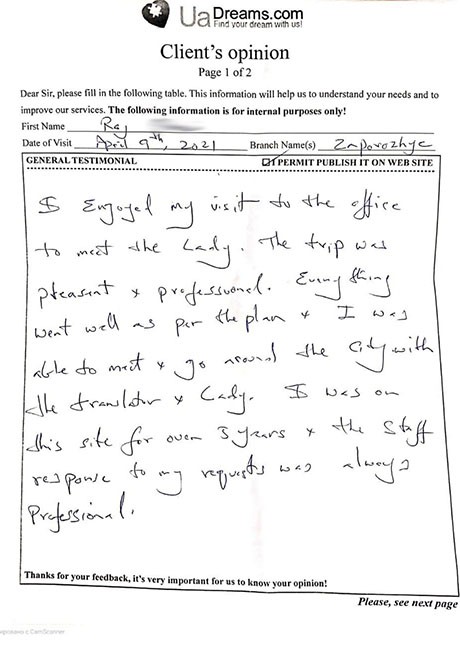 UaDreams.com
Find your dream with us!
Client's opinion
Page 1 of 2
Dear Sir, please fill in the following table. This information will help us to understand your needs and to
improve our services. The following information is for internal purposes only!
First Name Ray
Date of Visit April 9th, 2021 Branch Name(s) Zaporozhye
GENERAL TESTIMONIAL I PERMIT PUBLISH IT ON WEB SITE
I Engoyed my visit to the office
to meet the Lady. The trip was
pleasant & professional. Every thing
went well as per the plan & I was
able to meet & go around the City with
the translator & Lady. I was on
this site for over 3 years & the Staff
response to my requests was always
Professional.
Thanks for your feedback, it's very important for us to know your opinion!
Please, see next page
CamScanner